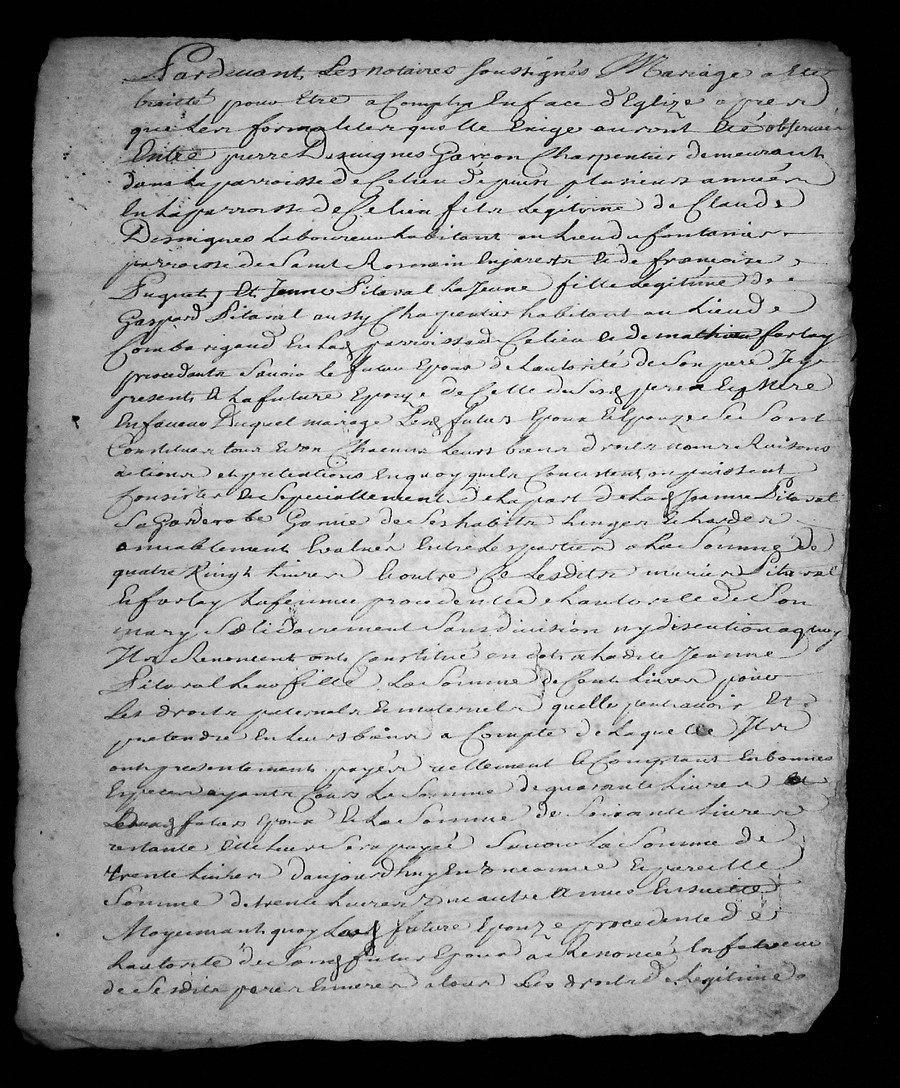 Pardevant Les notaires soussignés Mariage a Eté
traitté pour Etre acomply Enface d'Eglize apres
que Les formalites quelle Exige auront Eté observée
Entre pierre Desvignes Garçon Charpentier demeurant
dans La parroisse de Celieu depuis plusieurs années
En La parroisse de Celieu fils Legitime de Claude
Desvignes Laboureur habitant au Lieu de fontanies
parroisse de Saint Romain En jarests & de francoise
Puquet, Et Jeanne Pitaval La Jeune fille Legitime de
Gaspard Pitaval aussy Charpentier habitant au Lieu de
Combarigaud En Lad parroisse de Celieu & de mathieu farlay
procedants Savoir Le futur Epoux de Lautorité de Son pere Icy
present & La future Epouze de Celle dusd pere & mere
En faveur Duquel mariage Lesd futurs Epoux & Epouze Se Sont
Constitues tous Et un Chacuns Leurs biens droits noms Raisons
actions et petentions En quoy quils Concistent ou puissent
Consister & Speciallement de La part de Lad Jeanne Pitaval
Sa Garderobe Garnie de Ses habits Linges & hardes
amiablement Evalués Entre Les parties a La Somme de
quatre Vingt Livres & outre Ce Lesdits mariés Pitaval
& farlay La femme procedente de Lautorité de Son
mary Solidairement Sans division ny discution a quoy
Ils Renoncent ont Constitué en dot a Ladite Jeanne
Pitaval Leur fille La Somme de Cent Livres pour
Les droits paternels & maternels quelle peut avoir Et
pretendre En Leurs biens a Compte de Laquelle Ils
ont presentement payés réellement & Comptant En bonnes
Especes ayants Cours La Somme de quarante Livres
futurs Epoux & La Somme de Soixante Livres
restante Elle Leur Sera payée Savoir La Somme de
trente Livres d'aujourd'huy En Une année & pareille
Somme de trente Livres Une autre année Ensuitte
Moyennant quoy Lad future Epouze procedente de
Lautorité de Sond futur Epoux a Renoncé En faveur
de Sesdits pere & mere a tous Les droits de Legitime